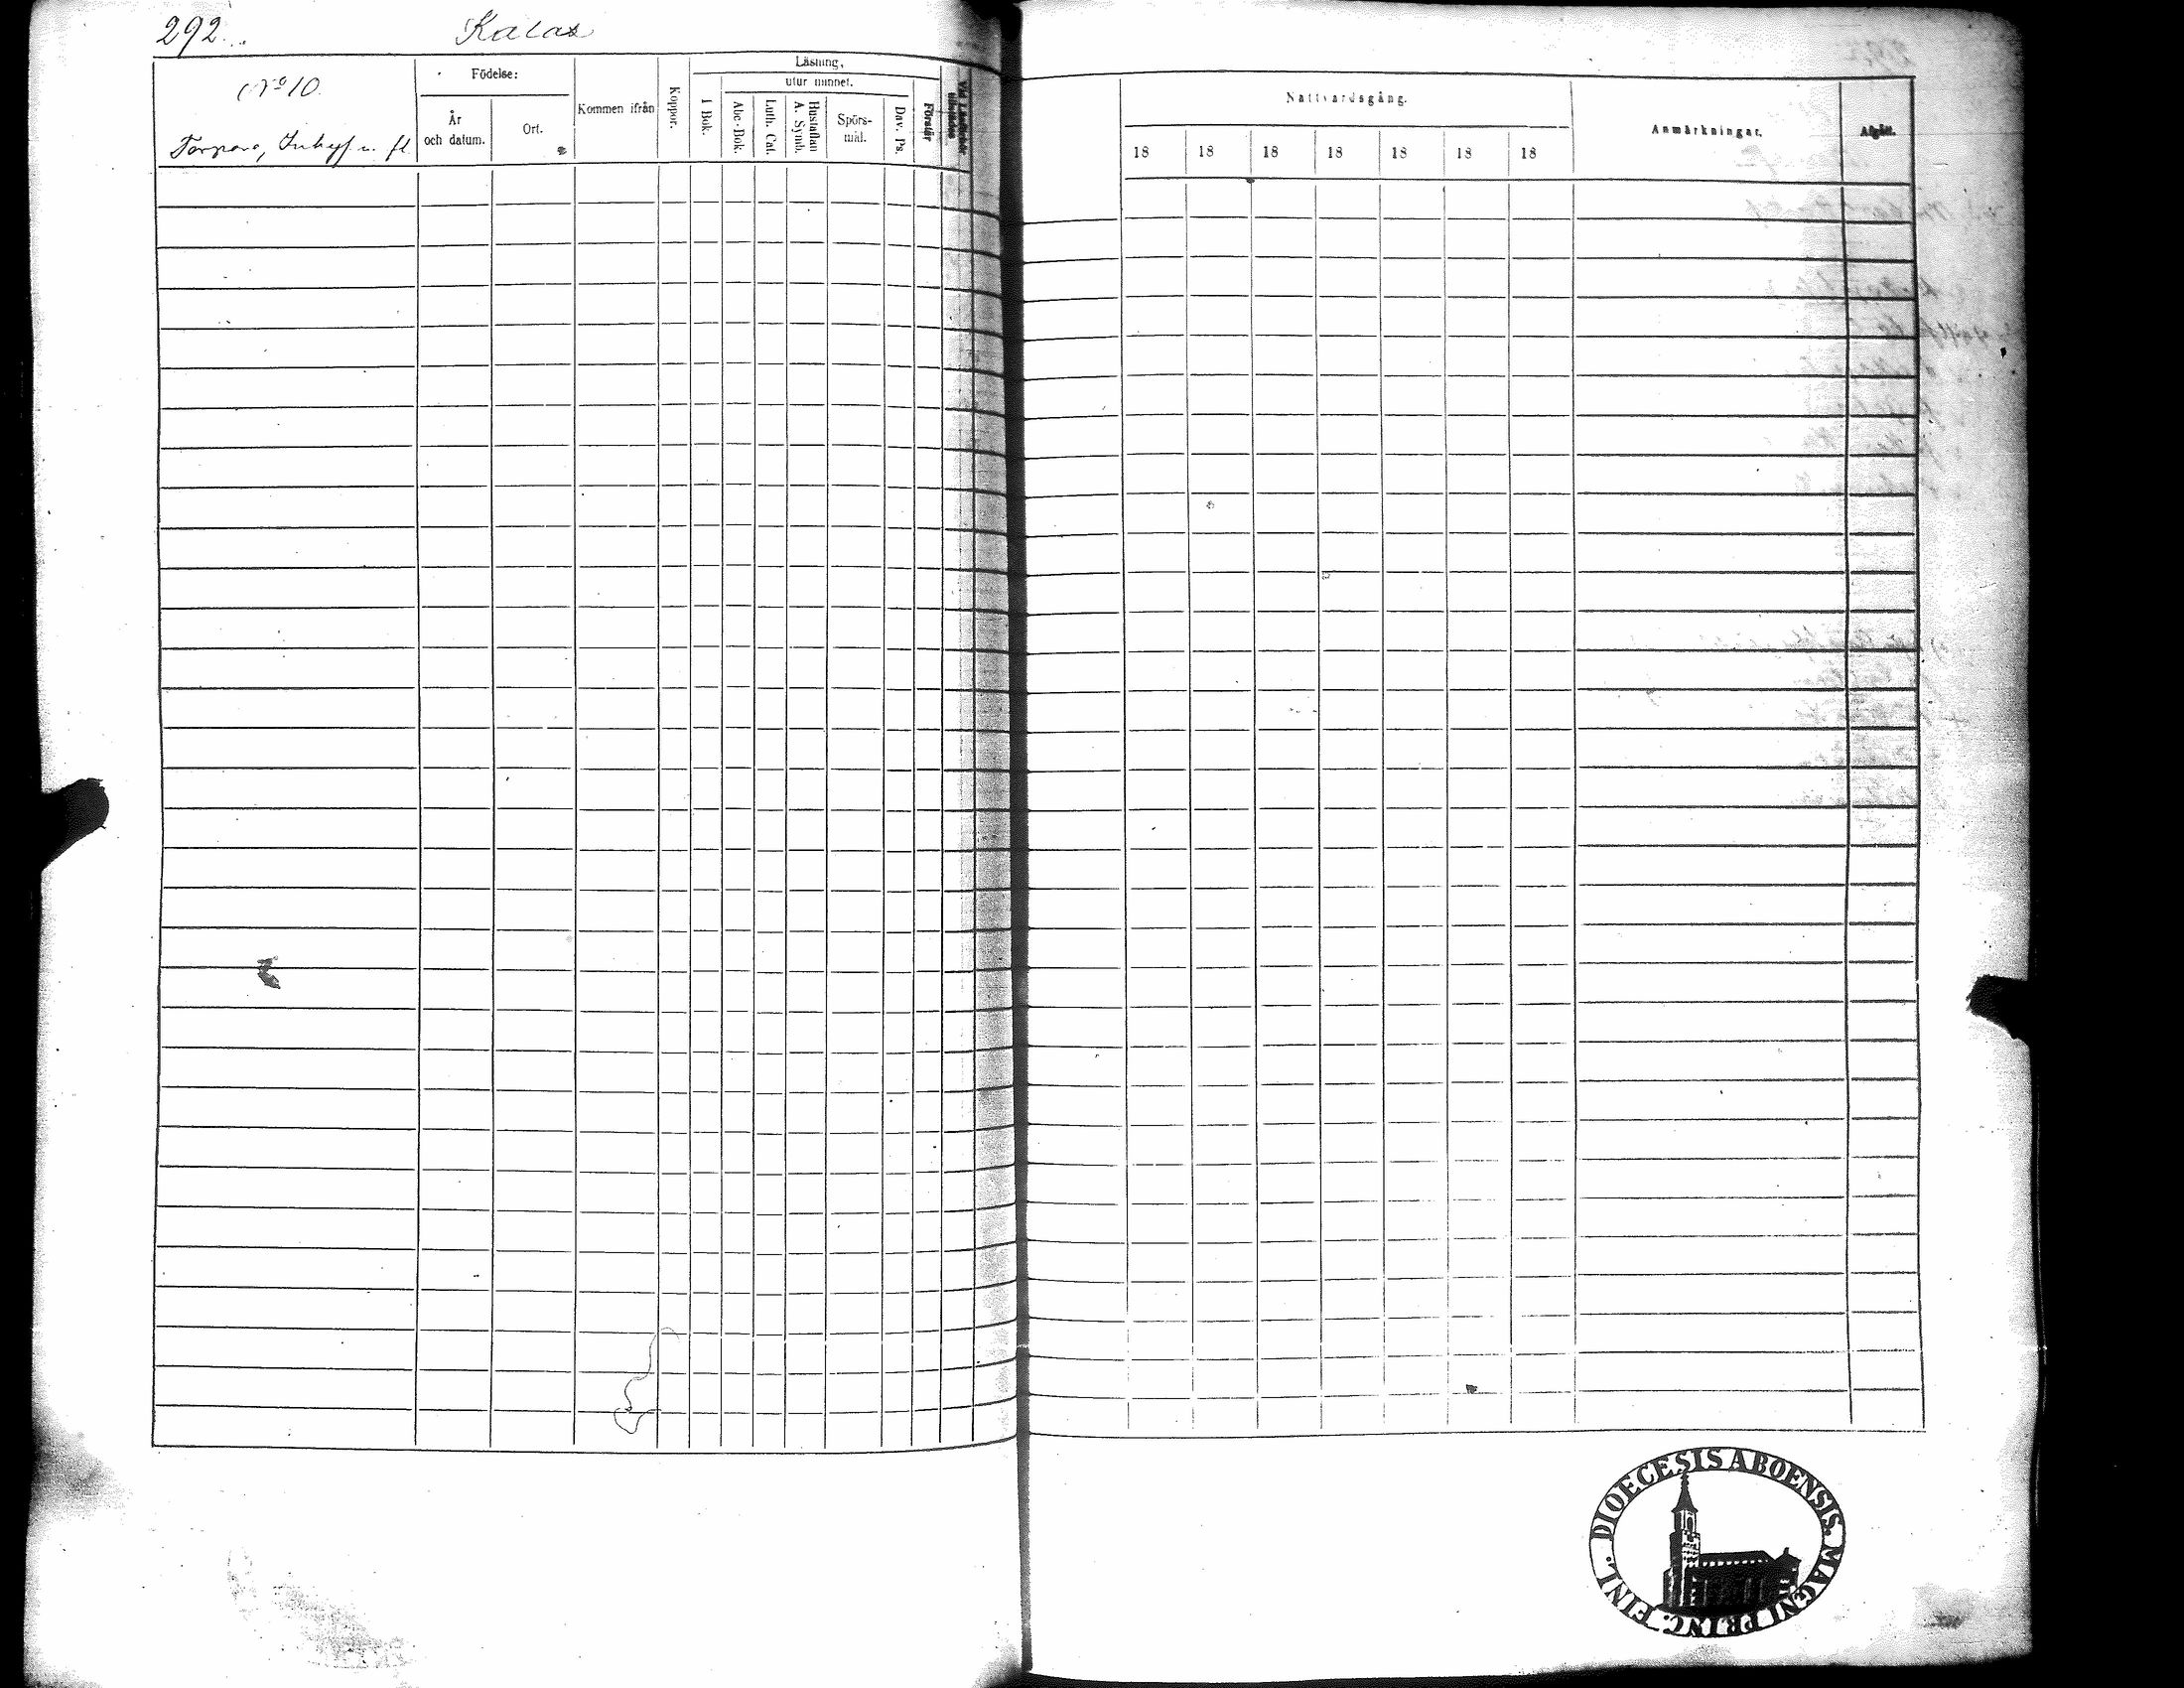 292.
Kalax
No 10.
Torpare, Inhys. m. fl.
Födelse:
År
och datum.
Ort.
Kommen ifrån
Koppor.
Läsning,
utur minnet.
I Bok.
Abc-Bok.
Luth. Cat.
Hustaflan
A. Symb.
Spörs-
mål.
Dav. Ps.
Förstår
Nattvardsgång.
18 18 18 18 18 18 18
Anmärkningar.
Afgått.
DIOECESIS ABOENSIS. MAGNI PRINC. FINL.